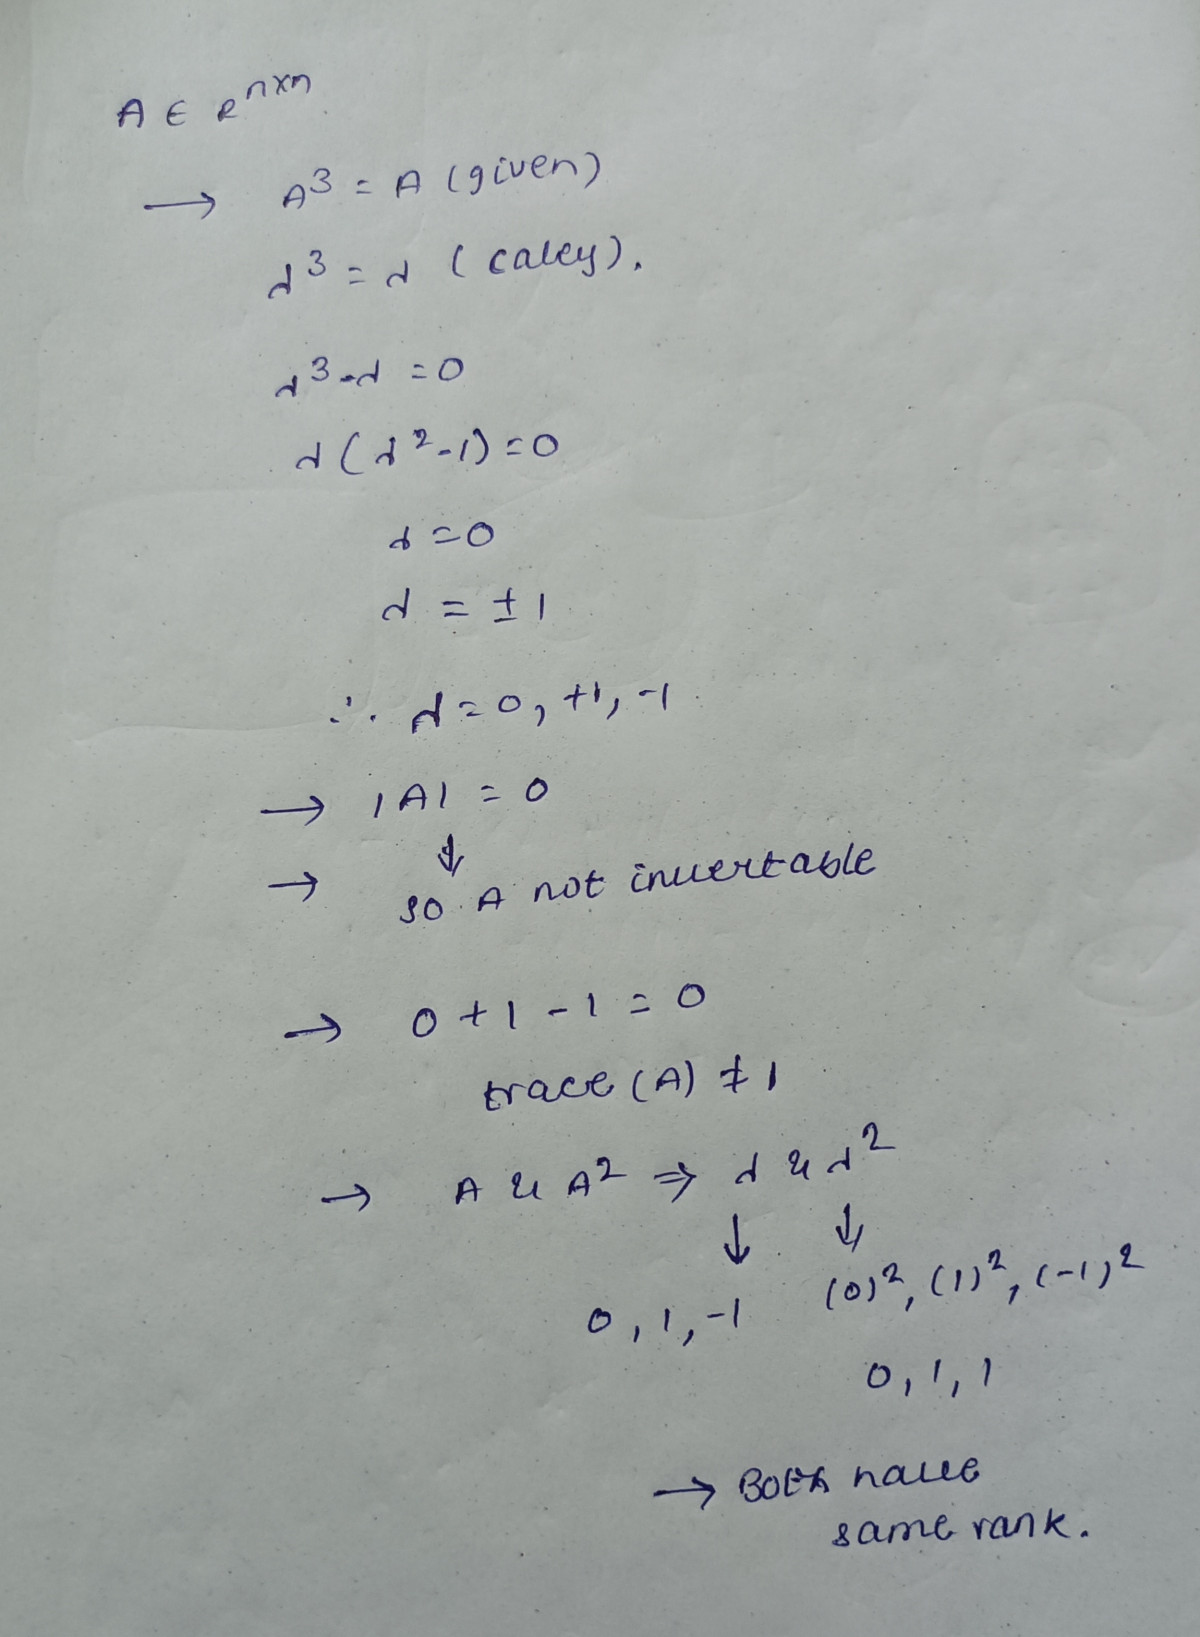 A ∈ R^n×n
→ A^3 = A (given)
λ^3 = λ (caley).
λ^3 - λ = 0
λ(λ^2 - 1) = 0
λ = 0
λ = ± 1
∴ λ = 0, +1, -1.
→ |A| = 0
↓
→ so A not invertable
→ 0 + 1 - 1 = 0
trace (A) ≠ 1
→ A & A^2 ⇒ λ & λ^2
↓ ↓
0, 1, -1 (0)^2, (1)^2, (-1)^2
0, 1, 1
→ Both have
same rank.